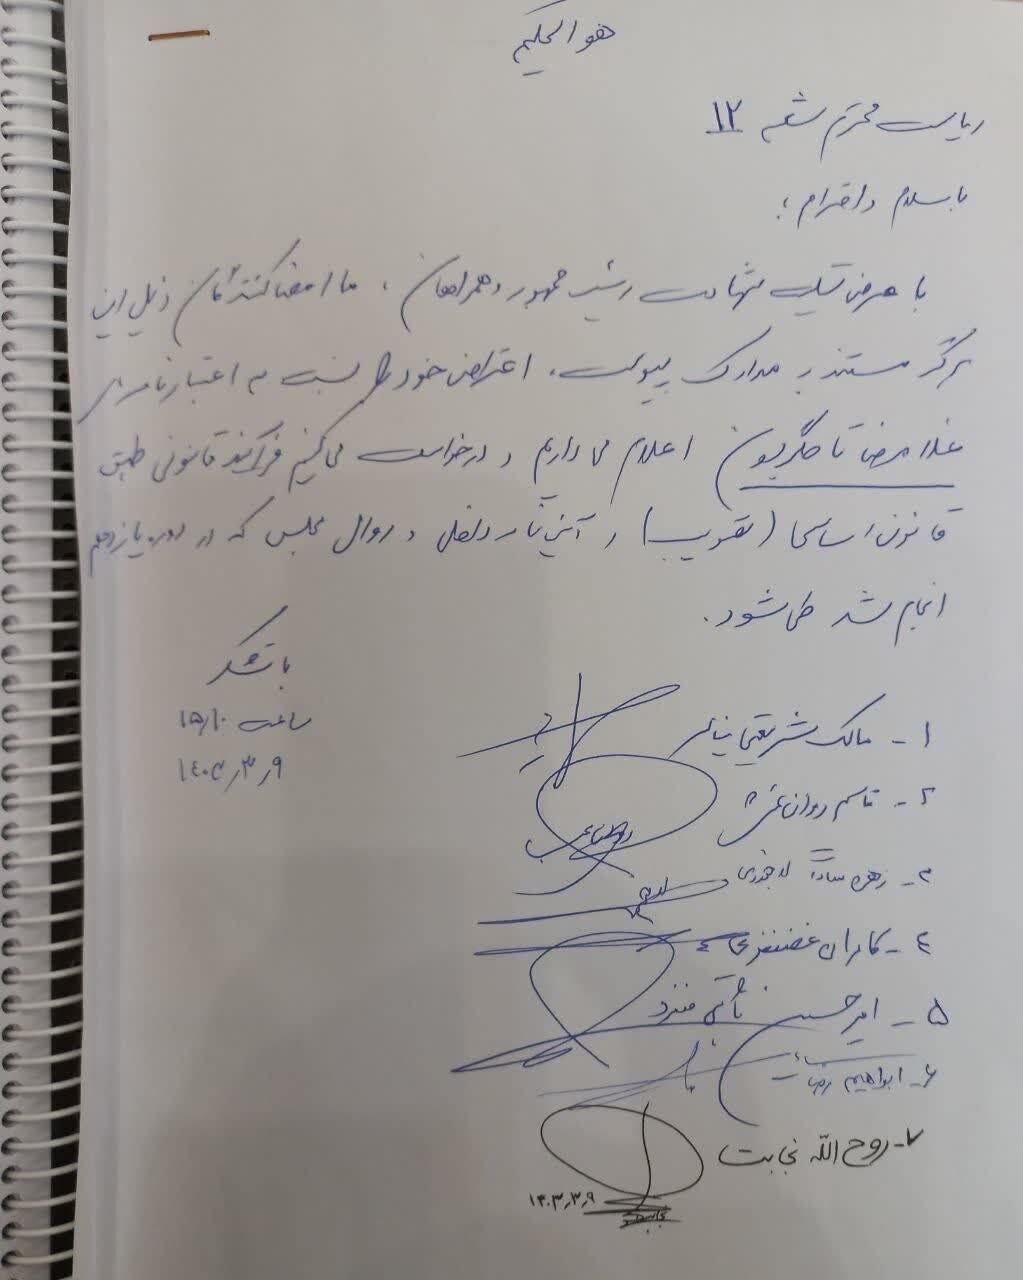 هو الحکیم
ریاست محترم شعبه ۱۲
با سلام و احترام؛
با عرض تسلیت شهادت رئیس جمهور و همراهان، ما امضا کنندگان ذیل این
برگه مستند به مدارک پیوست، اعتراض خود را نسبت به اعتبارنامه
غلامرضا تاجگردون اعلام می داریم و درخواست می کنیم فرآیند قانونی طبق
قانون اساسی و آئین نامه داخلی و روال مجلس که در دوره یازدهم
انجام شد طی شود.
با تشکر
ساعت ۱۵/۱۰
۱۴۰۳/۳/۹
۱- مالک شریعتی نیاسر
۲- قاسم روان بخش
۳- زهره سادات لاجوردی
۴- کامران غضنفری
۵- امیرحسین ثابتی منفرد
۶- ابراهیم رضایی
۷- روح الله نجابت
۱۴۰۳/۳/۹